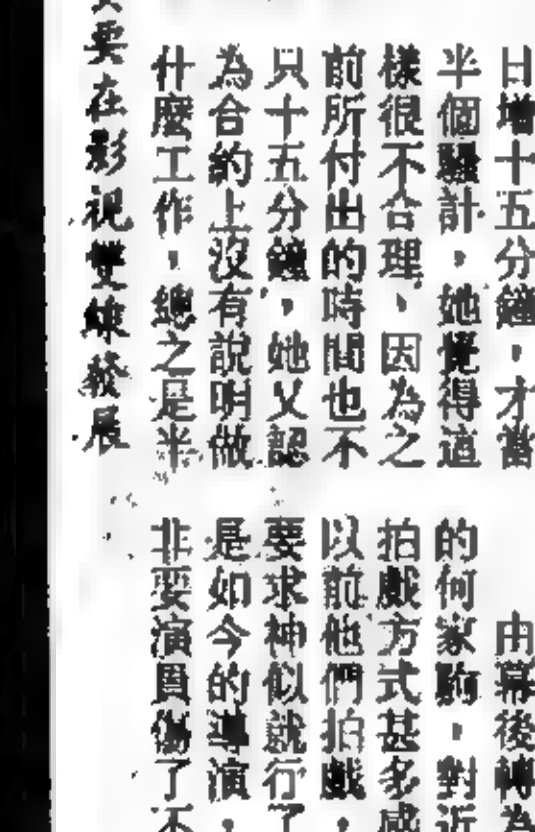 日增十五分鐘，才當
半個騷計，她覺得這
樣很不合理，因為之
前所付出的時間也不
只十五分鐘，她又認
為合約上沒有說明做
什麼工作，總之是半
要在影視雙線發展
由幕後轉為
的何家駒，對近
拍戲方式甚多感
以前他們拍戲，
要求神似就行了
是如今的導演，
非要演員傷了不